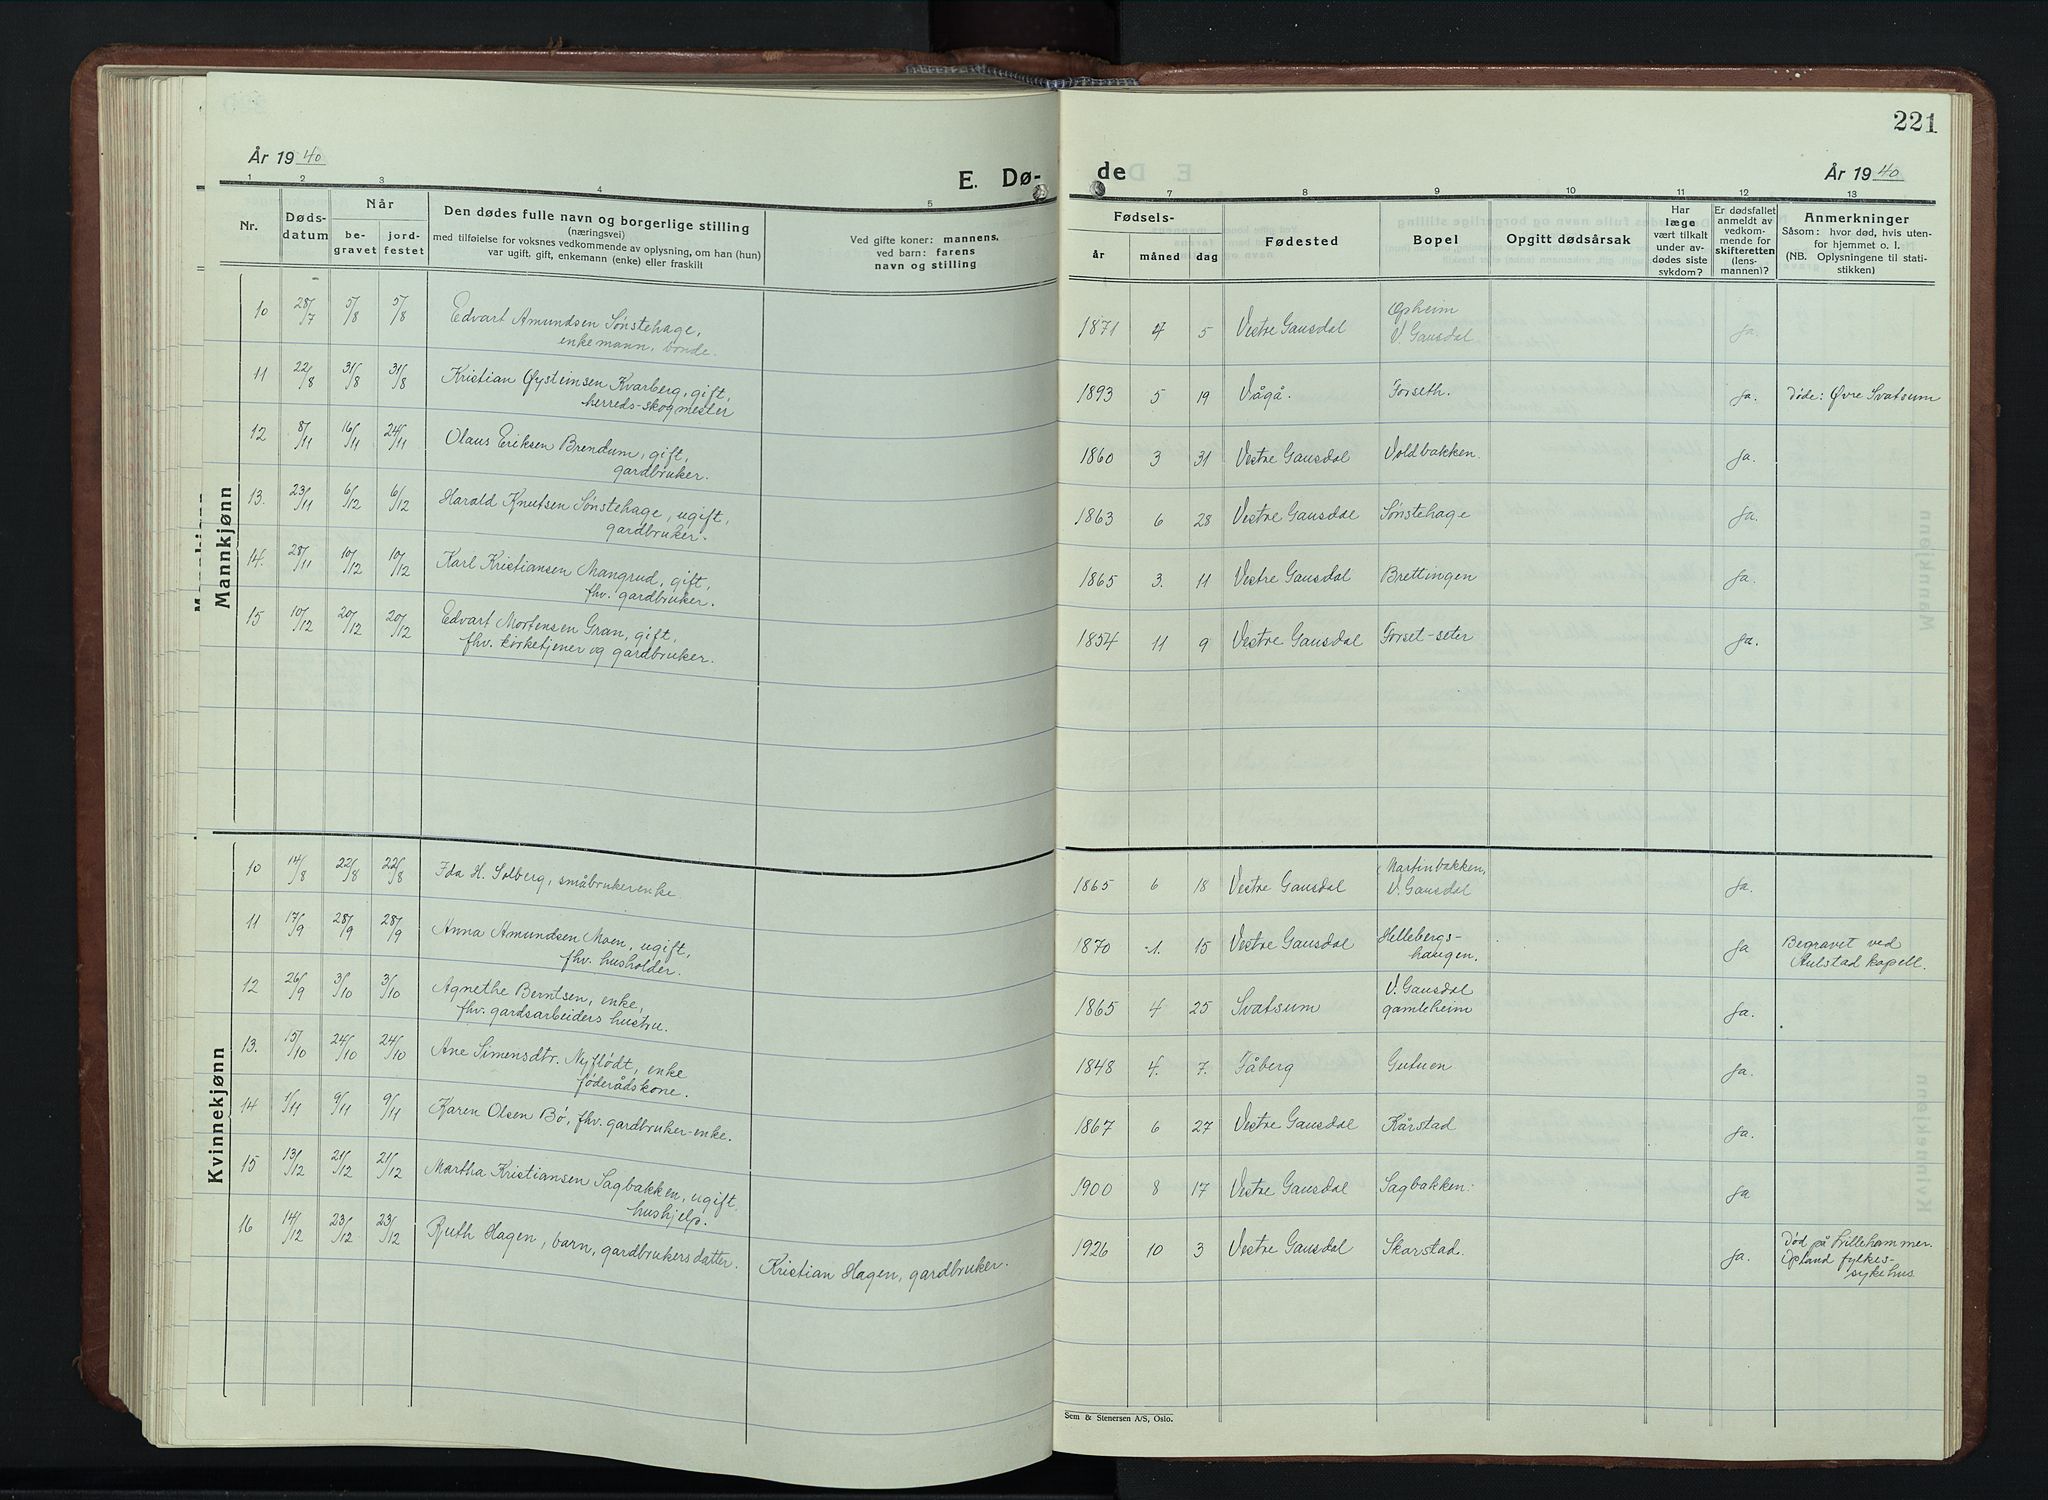 221
År 1940
E. Dø-
de
År 1940
1 2 3 4 5
7 8 9 10 11 12 13
Nr.
Døds-
datum
Når
be-
gravet
jord-
festet
Den dødes fulle navn og borgerlige stilling
(næringsvei)
med tilføielse for voksnes vedkommende av oplysning, om han (hun)
var ugift, gift, enkemann (enke) eller fraskilt
Ved gifte koner: mannens,
ved barn: farens
navn og stilling
Fødsels-
år måned dag
Fødested
Bopel
Opgitt dødsårsak
Har
læge
vært tilkalt
under av-
dødes siste
sykdom?
Er dødsfallet
anmeldt av
vedkom-
mende for
skifteretten
(lens-
mannen)?
Anmerkninger
Såsom: hvor død, hvis uten-
for hjemmet o. l.
(NB. Oplysningene til stati-
stikken)
Mannkjønn
10 28/7 5/8 5/8 Edvart Amundsen Sønstehage,
enkemann, bonde.
1871 4 5 Vestre Gausdal Opheim
V. Gausdal ja.
11 22/8 31/8 31/8 Kristian Øysteinsen Kvarberg, gift,
herreds-skogmester
1893 5 19 Vågå. Forseth. ja. Døde: Øvre Svatsum
12 8/11 16/11 24/11 Olaus Eriksen Brendum, gift,
gardbruker.
1860 3 31 Vestre Gausdal Voldbakken. ja.
13. 23/11 6/12 6/12 Harald Knutsen Sønstehage, ugift,
gardbruker.
1863 6 28 Vestre Gausdal Sønstehage ja.
14. 28/11 10/12 10/12 Karl Kristiansen Mangrud, gift,
fhv. gardbruker.
1865 3. 11 Vestre Gausdal Brettingen ja.
15 10/12 20/12 20/12 Edvart Mortensen Gran, gift,
fhv. kirketjener og gardbruker.
1854 11 9 Vestre Gausdal Forset-seter ja.
Kvinnekjønn
10 14/8 22/8 22/8 Ida H. Solberg, småbrukerenke.
1865 6 18 Vestre Gausdal Martinbakken,
V. Gausdal ja.
11 17/9 28/9 28/9 Anna Amundsen Moen, ugift,
fhv. husholder.
1870 1. 15 Vestre Gausdal Hellebergs-
haugen. ja Begravet ved
Aulstad kapell.
12 26/9 3/10 3/10 Agnethe Berntsen, enke,
fhv. gardsarbeiders hustru.
1865 4 25 Svatsum V. Gausdal
gamleheim ja.
13. 15/10 24/10 24/10 Ane Simensdtr. Nyflødt, enke
føderådskone.
1848 4. 7. Fåberg Gutuen ja.
14 1/11 9/11 9/11 Karen Olsen Bø, fhv. gardbruker-enke.
1867 6 27 Vestre Gausdal Kårstad ja.
15 13/12 21/12 21/12 Martha Kristiansen Sagbakken, ugift.
hushjelp.
1900 8 17 Vestre Gausdal Sagbakken. ja
16 14/12 23/12 23/12 Ruth Hagen, barn, gardbrukers datter. Kristian Hagen, gardbruker.
1926 10 3 Vestre Gausdal Skarstad. ja. Død på Lillehammer.
Opland fylkes-
sykehus
Sem & Stenersen A/S, Oslo.